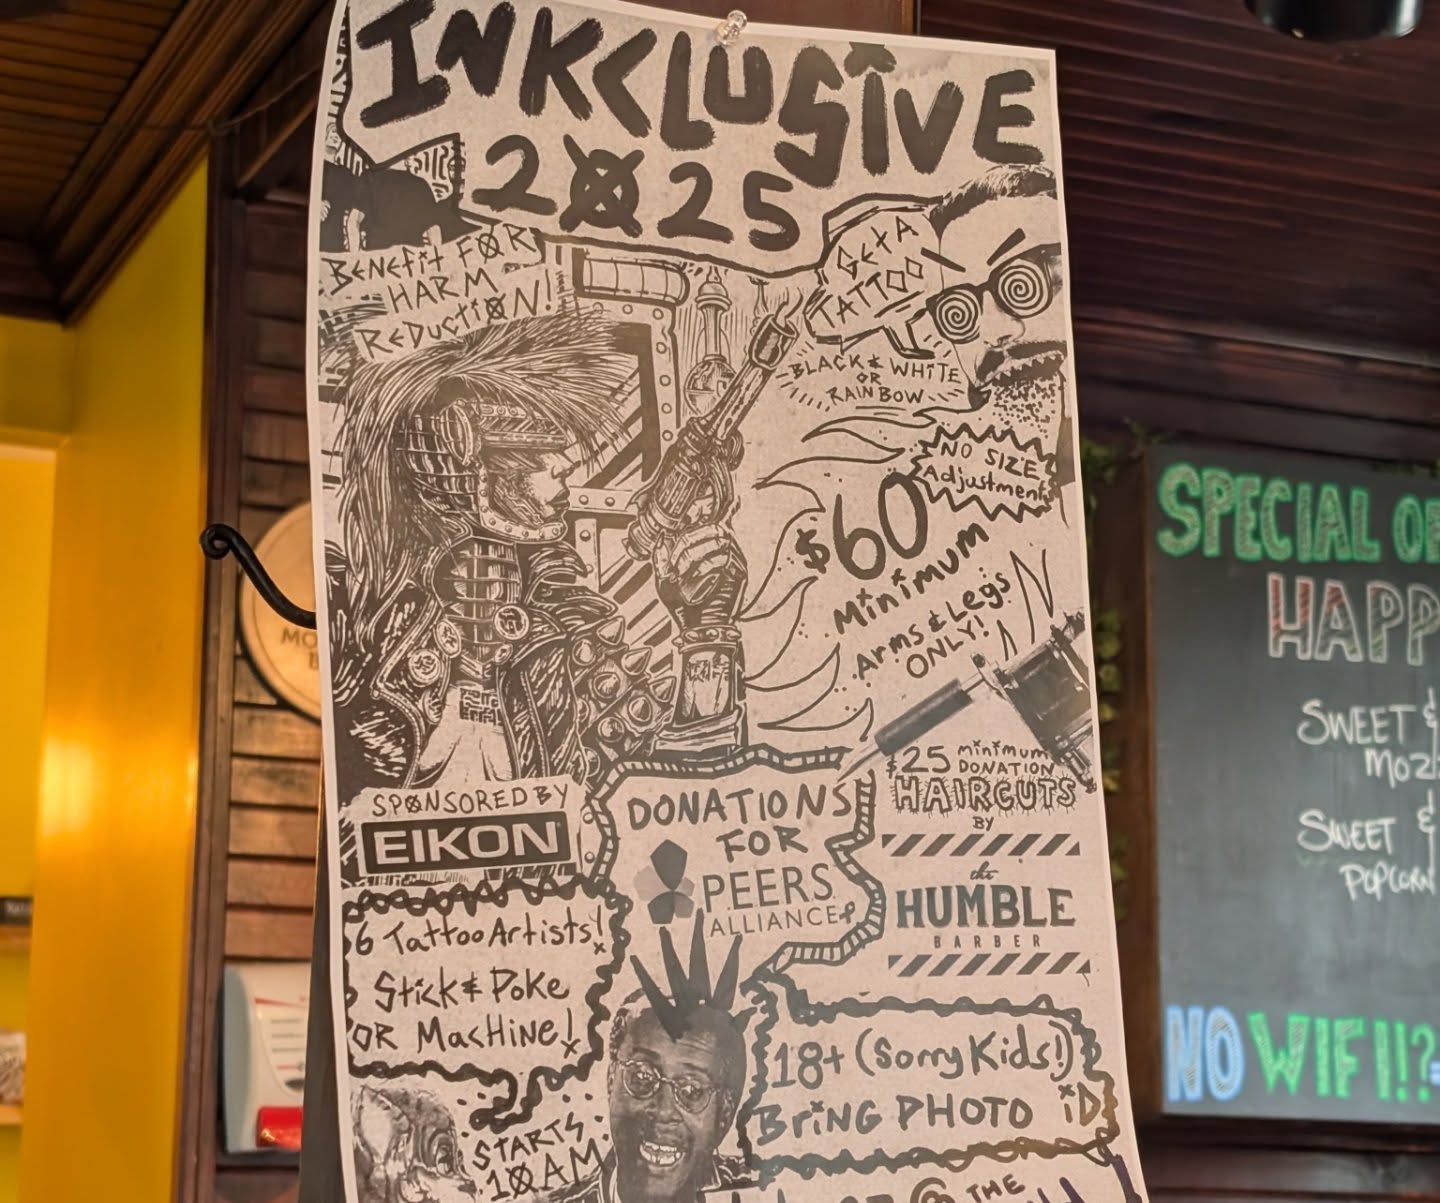 INKCLUSIVE
2025
BENEFIT FOR
HARM
REDUCTION!
GET A
TATTOO
BLACK & WHITE
OR
RAINBOW
NO SIZE
Adjustments
$60
Minimum
Arms & Legs
ONLY!
SPONSORED BY
EIKON
DONATIONS
FOR
PEERS
ALLIANCE
$25 minimum
DONATION
HAIRCUTS
BY
the
HUMBLE
BARBER
6 Tattoo Artists!
Stick & Poke
OR Machine!
18+ (Sorry Kids!)
BRING PHOTO iD
STARTS
10AM
@ THE
SPECIAL
HAPP
SWEET &
MOZ
SWEET &
POPCORN
NO WIFI!!?